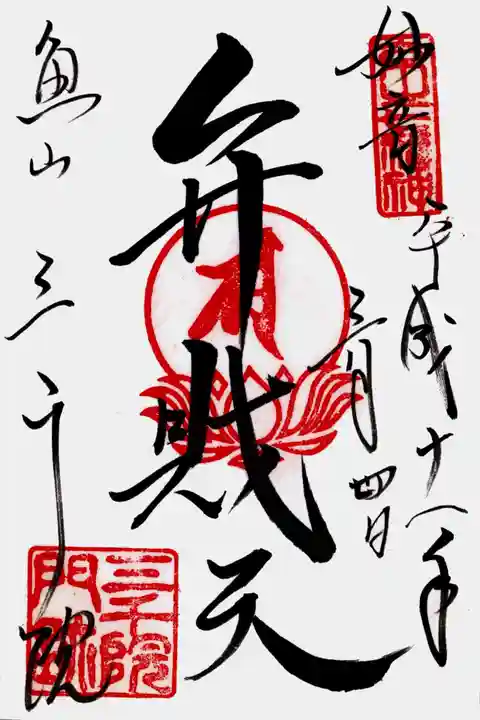 妙音
平成十一年
三月四日
弁財天
魚山
三千院
三千院
門跡